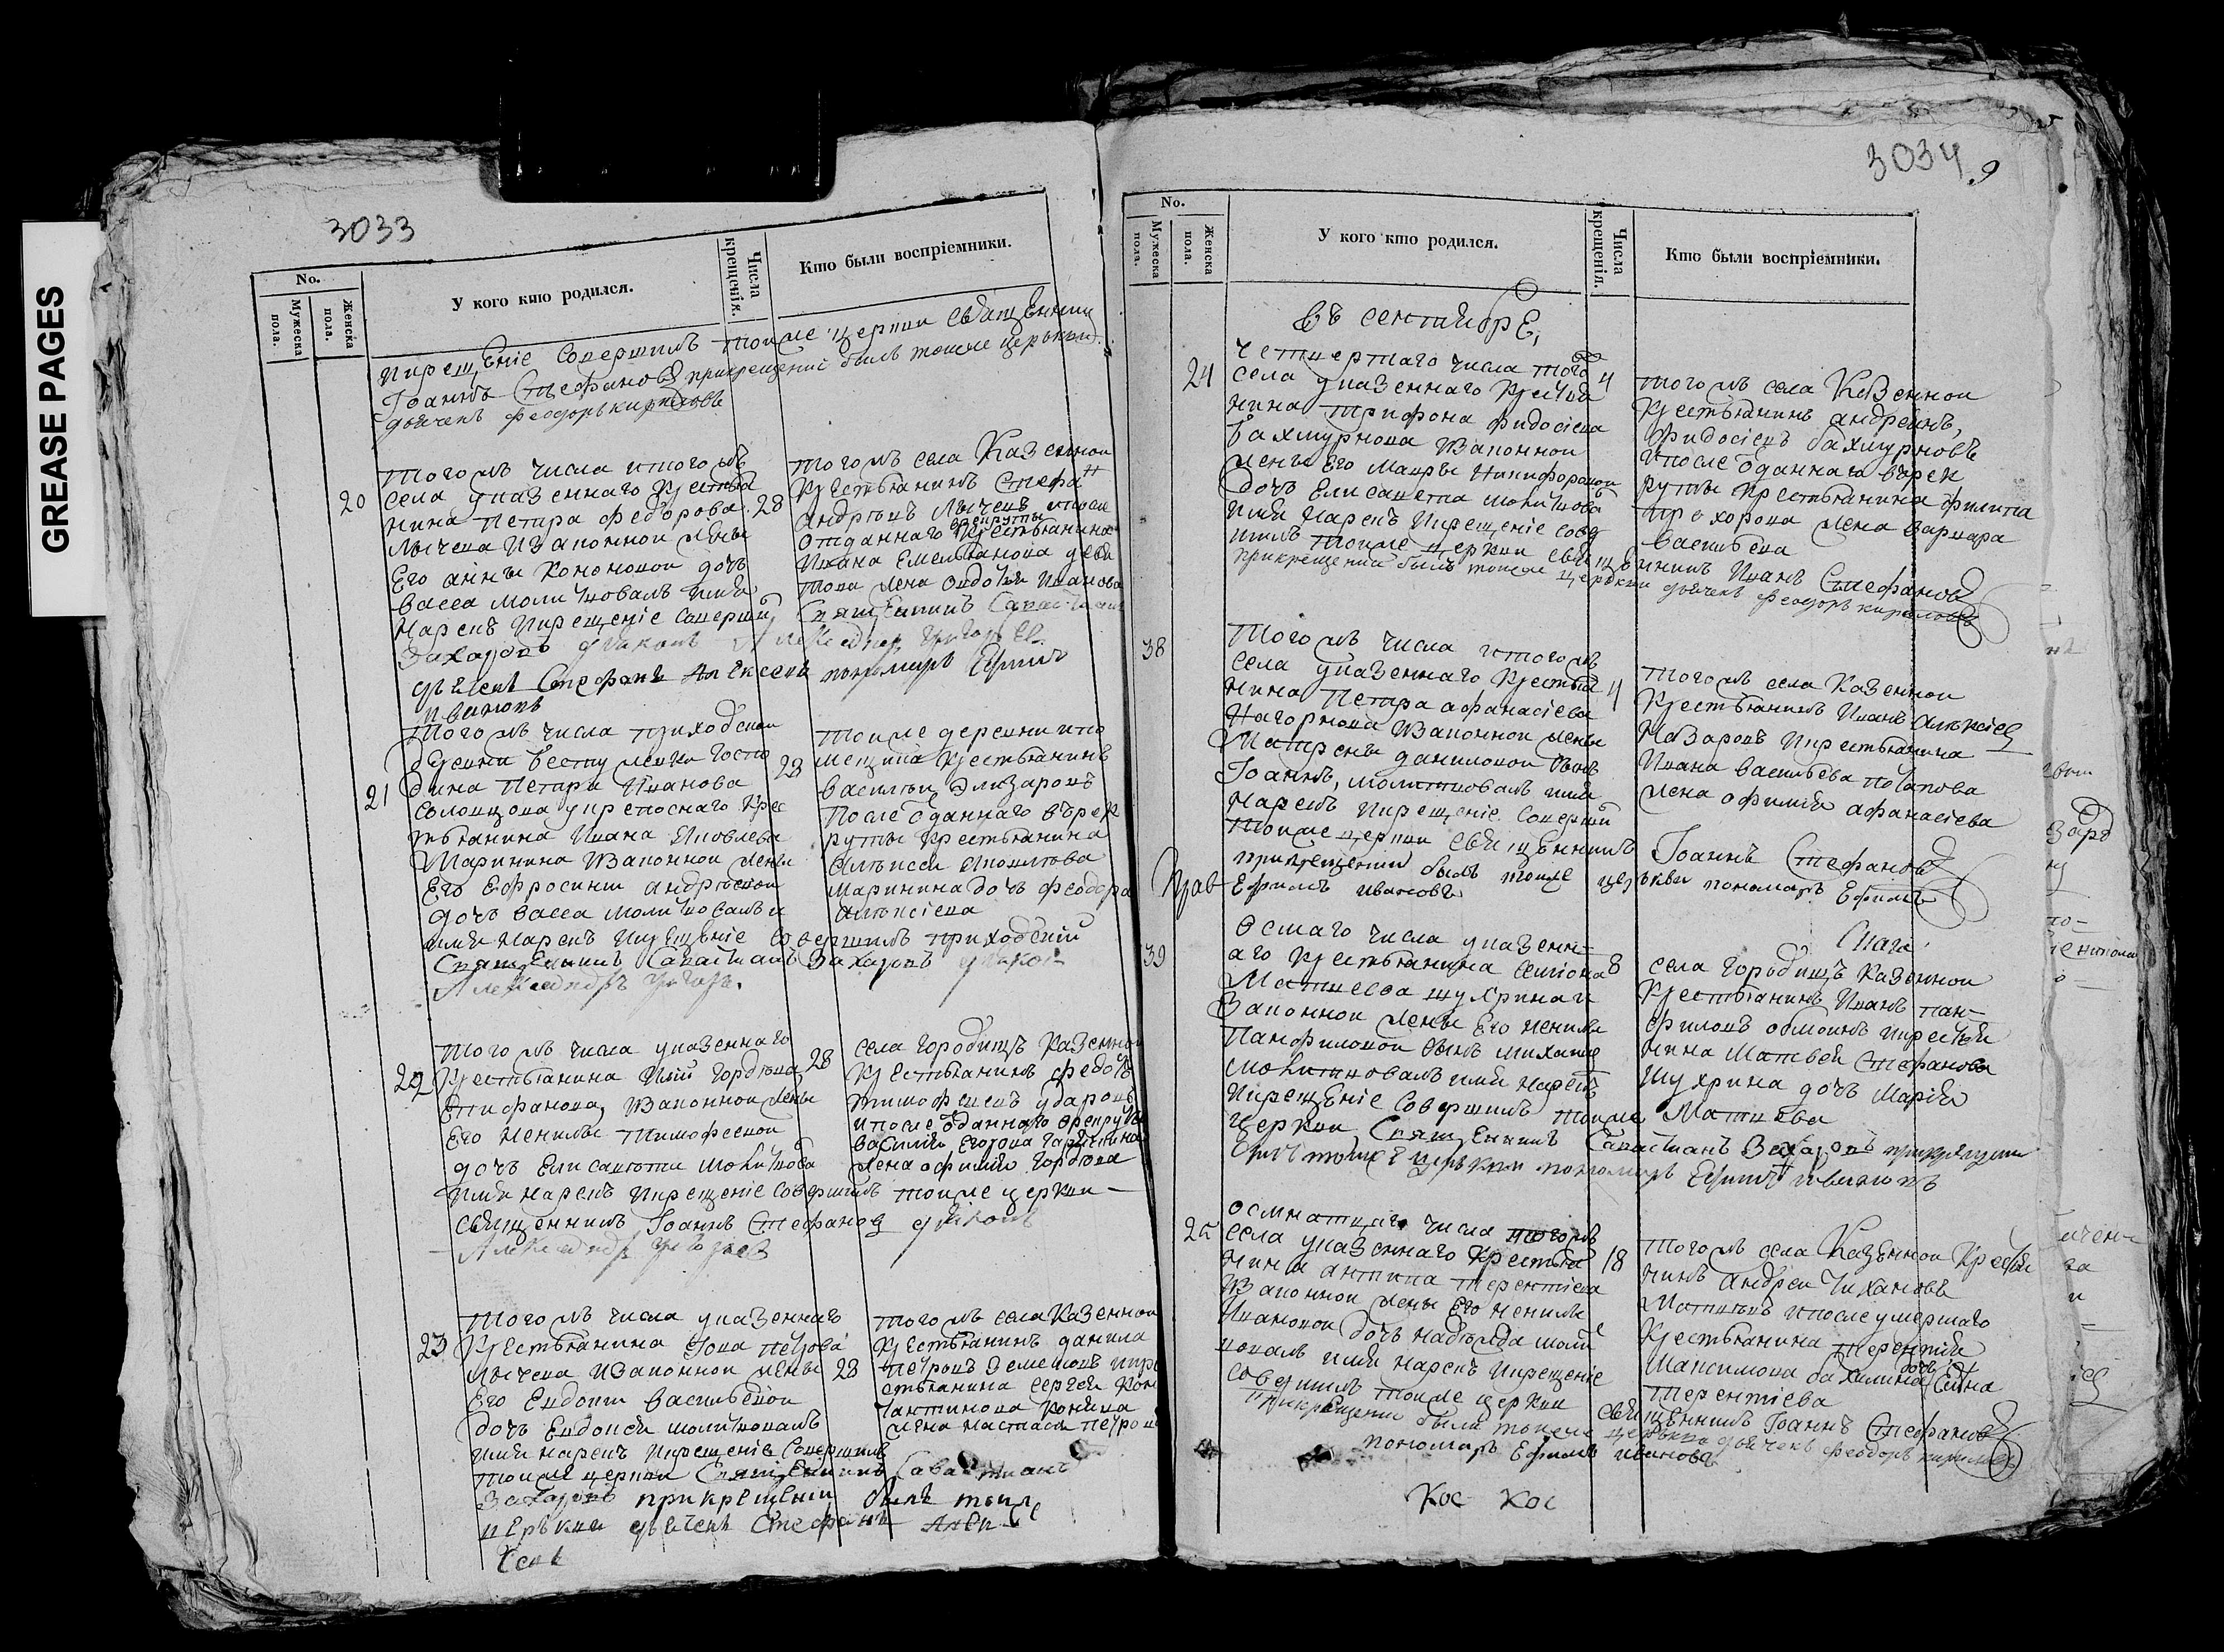 GREASE PAGES
3033
No.
Мужеска пола.
Женска пола.
У кого кто родился.
Числа крещенія.
Кто были воспріемники.
и крещеніе Совершилъ тоиже церкви священникъ
Іоаннъ Стефановъ прикрещеніи былъ тоиже церькви
дьячекъ феодоръ кириловъ
20
тогожъ числа итогожъ
села указеннаго Крестья
нина Петра федорова
лычева Изаконной жены
Его анны Кононовои дочь
васса молитвовалъ имя
Нарекъ Икрещеніе Соверши
28
тогожъ села Казеннои
Крестьянинъ Стефа
андреевъ лычевъ ипосле
отданнаго врекруты Крестьянина
Ивана Емельянова
жена Овдотья Иванова
Священникъ Савастиан
Захаровъ дьяконъ Александръ Григорьев
дьячекъ Стефанъ Алексеевъ пономарь Ефимъ
ивановъ
21
Тогожъ числа приходскои
деревни госпо
дина Петра Иванова
Солонцова укрепоснаго Крес
тьянина Ивана Яковлева
Маринина Изаконной жены
Его Ефросиньи андреевои
дочь васса молитвовалъ и
имя Нарекъ Икрещеніе Совершилъ приходскій
Священникъ Савастианъ Захаровъ дьякон
Александръ Григорь.
28
тоиже деревни ипо
мещика Крестьянинъ
василеи Элизаровъ
После отданнаго врек
руты Крестьянина
Маринина дочь феодора
алексіева
22
тогожъ числа указеннаго
Крестьянина Ильи Гордеева
Епифанова, Изаконной жены
Его Ненилы тимофеевои
дочь Елисавета молитвова
имя нарекъ Икрещеніе Совершилъ тоиже церкви
священникъ Іоаннъ Стефановъ дьяконъ
Александръ Григорьев
28
села городищъ Казенной
Крестьянинъ федотъ
тимофеевъ ударовъ
ипосле отданнаго врекруты
василія Егорова
жена офимия Гордеева
23
тогожъ числа указеннаго
Крестьянина Іова петрова
лычева Изаконной жены
Его Евдокии васильевои
дочь Евдокея молитвовалъ
имя нарекъ Икрещеніе Совершилъ
тоиже церкви Священникъ Савастианъ
Захаровъ прикрещеніи былъ тоиже
церькви дьячекъ Стефанъ Алек
сеевъ
28
тогожъ села Казенной
Крестьянинъ данила
петровъ Семеновъ икре
стьянина сергея Кон
тантинова Конкина
жена настасья петров
3034
9
No.
Мужеска пола.
Женска пола.
У кого кто родился.
Числа крещенія.
Кто были воспріемники.
Въ сентябрѣ,
24
четвертаго числа того
села указеннаго Крестья
нина трифона фидосіева
бахмурнова Изаконной
жены Его Мавры Никифоровои
дочь Елисавета молитвова
имя Нарекъ Икрещеніе совер
шилъ тоиже церкви священникъ Иванъ Стефановъ
прикрещеніи былъ тоиже церькви дьячекъ феодоръ кириловъ
4
тогожъ села Казеннои
Крестьянинъ андреянъ,
фидосіевъ бахмурновъ
ипосле отданнаго врек
руты Крестьянина филипа
прохорова жена варвара
васильева
38
тогожъ числа итогожъ
села указеннаго Крестья
нина Петра афанасіева
Нагорнова Изаконной жены
Матрены даниловои сынъ
Іоаннъ, молитвовалъ имя
нарекъ Икрещеніе Соверши
тоиже церкви священникъ Іоаннъ Стефановъ
прикрещеніи былъ тоиже церькви пономарь Ефимъ
Ефимъ ивановъ
4
тогожъ села Казенной
Крестьянинъ Иванъ алексіев
Назаровъ Икрестьянина
Ивана васильева потапова
жена офимия афанасіева
39
Осмаго числа указенн
аго Крестьянина семиона
Матвеева шухрина и
Законной жены Его Ненилы
Панфиловои сынъ михаилъ
молитвовалъ имя нарекъ
Икрещеніе Совершилъ тоиже
церкви Священникъ Савастианъ Захаровъ прикрещении
былъ тоиже церькви пономарь Ефимъ ивановъ
8
села Городищъ Казенной
Крестьянинъ Иванъ пан
филовъ Икрестья
нина Матвея Стефанова
шухрина дочь Марія
Матвеева
25
осмнатцаго числа тогожъ
села указеннаго Крестья
нина антипа терентіева
Изаконной жены Его Ненилы
Ивановои дочь надежда молит
вовалъ имя нарекъ Икрещеніе
совершилъ тоиже церкви
священникъ Іоаннъ Стефановъ
прикрещеніи были тоиже церькви дьячекъ феодоръ кириловъ
пономарь Ефимъ ивановъ
18
тогожъ села Казенной Крестья
нинъ андреи
Матвеевъ ипосле умершаго
Крестьянина терентія
Максимова дочь
терентіева
Кос Кос